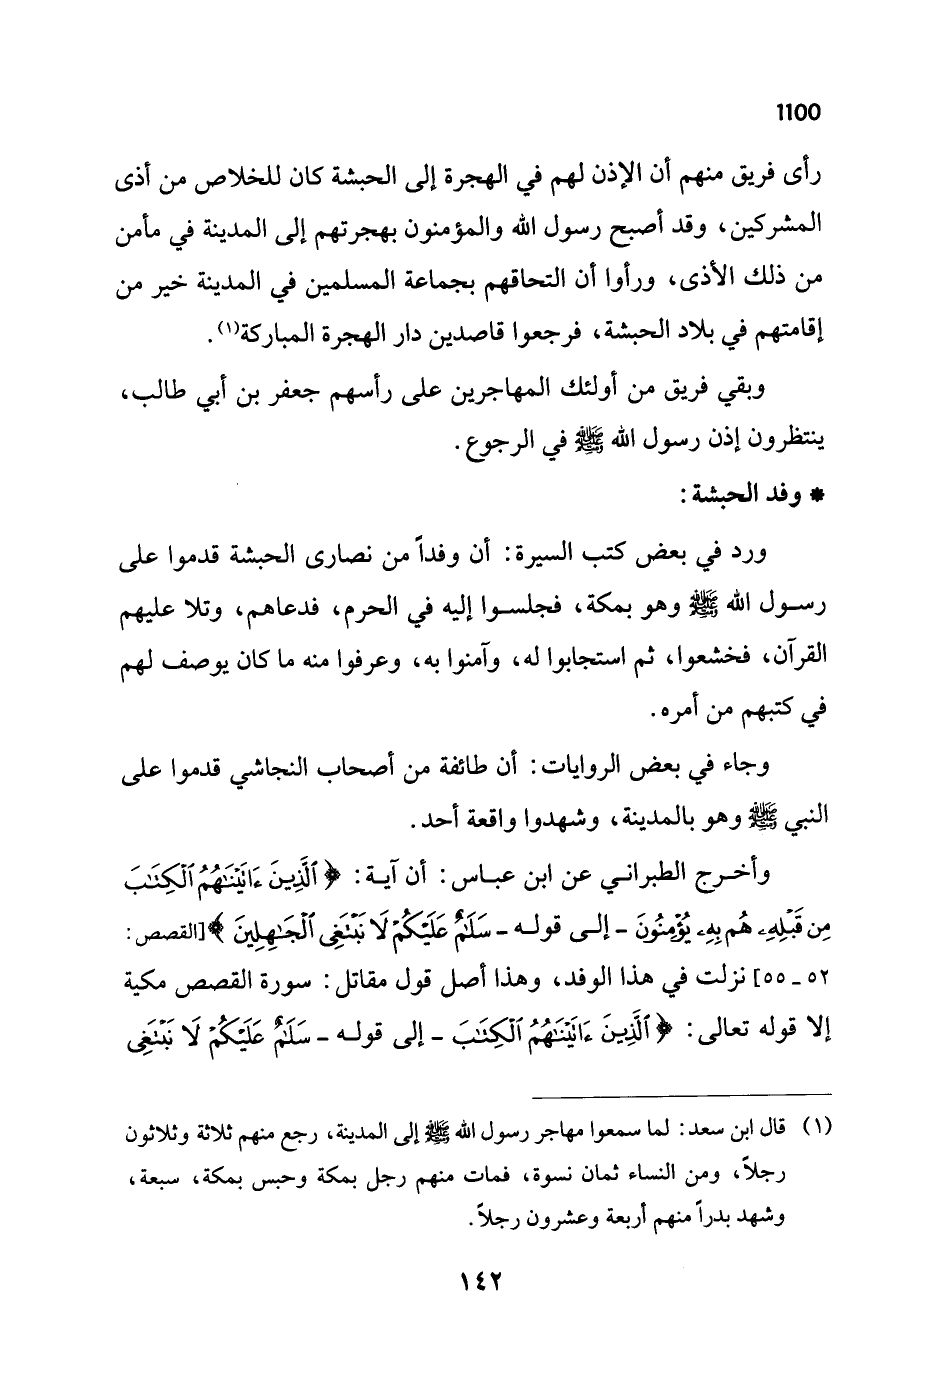 1100
رأى فريق منهم أن الإذن لهم في الهجرة إلى الحبشة كان للخلاص من أذى
المشركين، وقد أصبح رسول الله والمؤمنون بهجرتهم إلى المدينة في مأمن
من ذلك الأذى، ورأوا أن التحاقهم بجماعة المسلمين في المدينة خير من
إقامتهم في بلاد الحبشة، فرجعوا قاصدين دار الهجرة المباركة(١).
وبقي فريق من أولئك المهاجرين على رأسهم جعفر بن أبي طالب،
ينتظرون إذن رسول الله ﷺ في الرجوع.
* وفد الحبشة:
ورد في بعض كتب السيرة: أن وفداً من نصارى الحبشة قدموا على
رسول الله ﷺ وهو بمكة، فجلسوا إليه في الحرم، فدعاهم، وتلا عليهم
القرآن، فخشعوا، ثم استجابوا له، وآمنوا به، وعرفوا منه ما كان يوصف لهم
في كتبهم من أمره.
وجاء في بعض الروايات: أن طائفة من أصحاب النجاشي قدموا على
النبي ﷺ وهو بالمدينة، وشهدوا واقعة أحد.
وأخرج الطبراني عن ابن عباس: أن آية: ﴿ٱلَّذِينَ ءَاتَيْنَٰهُمُ ٱلْكِتَٰبَ
مِن قَبْلِهِۦ هُم بِهِۦ يُؤْمِنُونَ - إلى قوله - سَلَٰمٌ عَلَيْكُمْ لَا نَبْتَغِى ٱلْجَٰهِلِينَ﴾ [القصص:
٥٢ - ٥٥] نزلت في هذا الوفد، وهذا أصل قول مقاتل: سورة القصص مكية
إلا قوله تعالى: ﴿ٱلَّذِينَ ءَاتَيْنَٰهُمُ ٱلْكِتَٰبَ - إلى قوله - سَلَٰمٌ عَلَيْكُمْ لَا نَبْتَغِى
(١) قال ابن سعد: لما سمعوا مهاجر رسول الله ﷺ إلى المدينة، رجع منهم ثلاثة وثلاثون
رجلاً، ومن النساء ثمان نسوة، فمات منهم رجل بمكة وحبس بمكة، سبعة،
وشهد بدراً منهم أربعة وعشرون رجلاً.
١٤٢